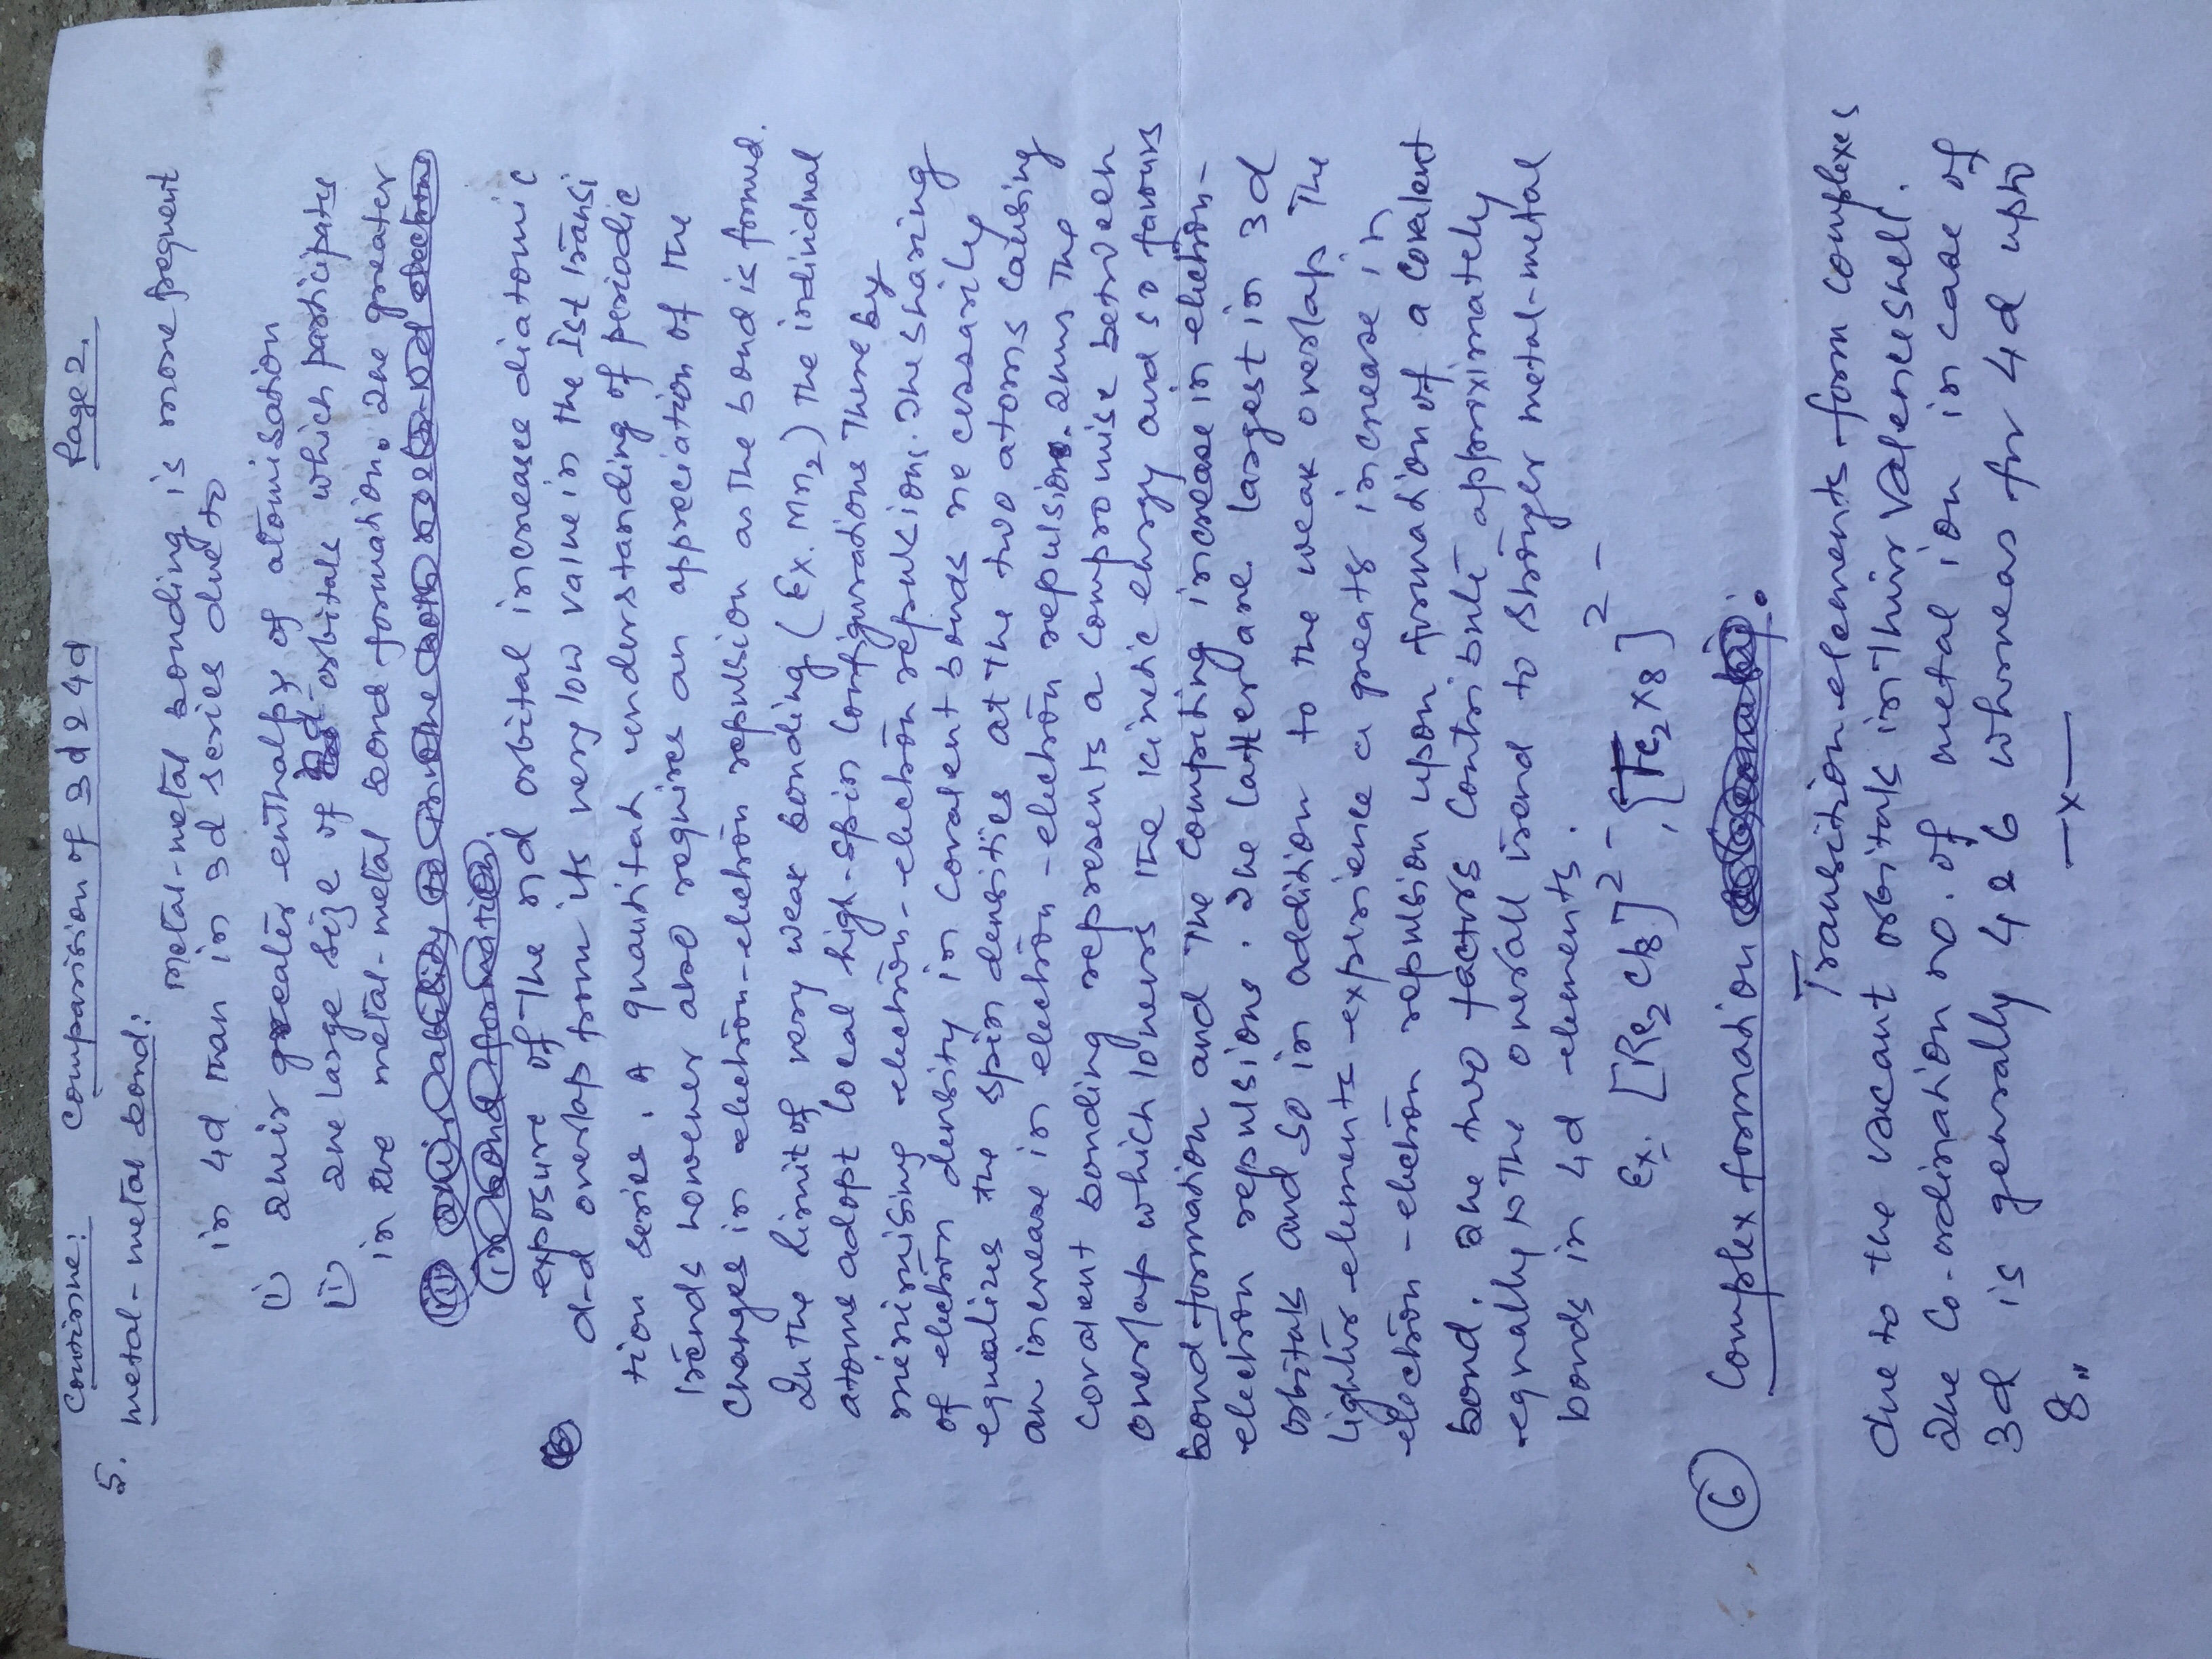 Continue: Comparision of 3d & 4d Page 2.
5. Metal-metal bond:
Metal-metal bonding is more frequent
in 4d than in 3d series due to
(i) Their greater enthalpy of atomisation
(ii) The large size of 4d orbitals which participates
in the metal-metal bond formation. The greater
exposure of the nd orbital increase diatomic
d-d overlap from its very low value in the Ist transi
tion series. A quantitat understanding of periodic
trends however also requires an appreciation of the
changes in electron-electron repulsion as the bond is formed.
In the limit of very weak bonding (Ex. Mn2) the individual
atoms adopt local high-spin configurations there by
minimising electron-electron repulsion. The sharing
of electron density in covalent bonds necessarily
equalizes the spin densities at the two atoms causing
an increase in electron-electron repulsion. Thus the
covalent bonding represents a compromise between
overlap which lowers the kinetic energy and so favours
bond formation and the competing increase in electron-
electron repulsions. The latter are largest in 3d
orbitals and so in addition to the weak overlap the
lighter elements experience a greater increase in
electron-electron repulsion upon formation of a covalent
bond. The two factors contribute approximately
equally to the overall trend to stronger metal-metal
bonds in 4d elements.
Ex. [Re2Cl8]2-, [Tc2X8]2-
(6) Complex formation :
Transition elements form complexes
due to the vacant orbitals in their valence shell.
The Co-ordination no. of metal ion in case of
3d is generally 4 & 6 whereas for 4d upto
8,,
—x—